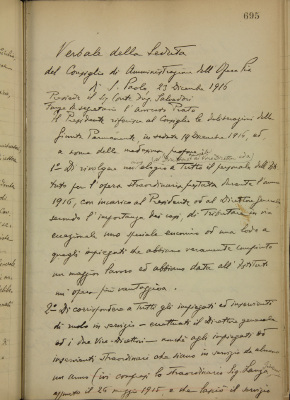 695
Verbale della Seduta
del Consiglio di Amministrazione dell'Opera Pia
di S. Paolo, 23 Dicembre 1916
Presiede il Sig. Conte Avv. Salvadori
Funge da segretario l'avvocato Prato
Il Presidente riferisce al Consiglio le deliberazioni della
Giunta Permanente, in seduta 19 Dicembre 1916, ed
a nome della medesima propone
1° Di rivolgere un elogio a tutto il personale dell'Isti
tuto per l'opera straordinaria prestata durante l'anno
1916, con incarico al Presidente ed al Direttore Generale
secondo l'importanza dei casi, di tributare in via
eccezionale uno speciale encomio od una lode a
quegli impiegati che abbiano veramente compiuto
un maggior lavoro ed abbiano data all'Istituto
un'opera più vantaggiosa.
2° Di corrispondere a tutti gli impiegati ed inservienti
di ruolo in servizio - eccettuati il Direttore generale
ed i due Vice-Direttori - anche agli impiegati ed
inservienti straordinari che siano in servizio da almeno
un anno (ivi compreso lo straordinario Sig.
assunto il 26 maggio 1915 e che lasciò il servizio